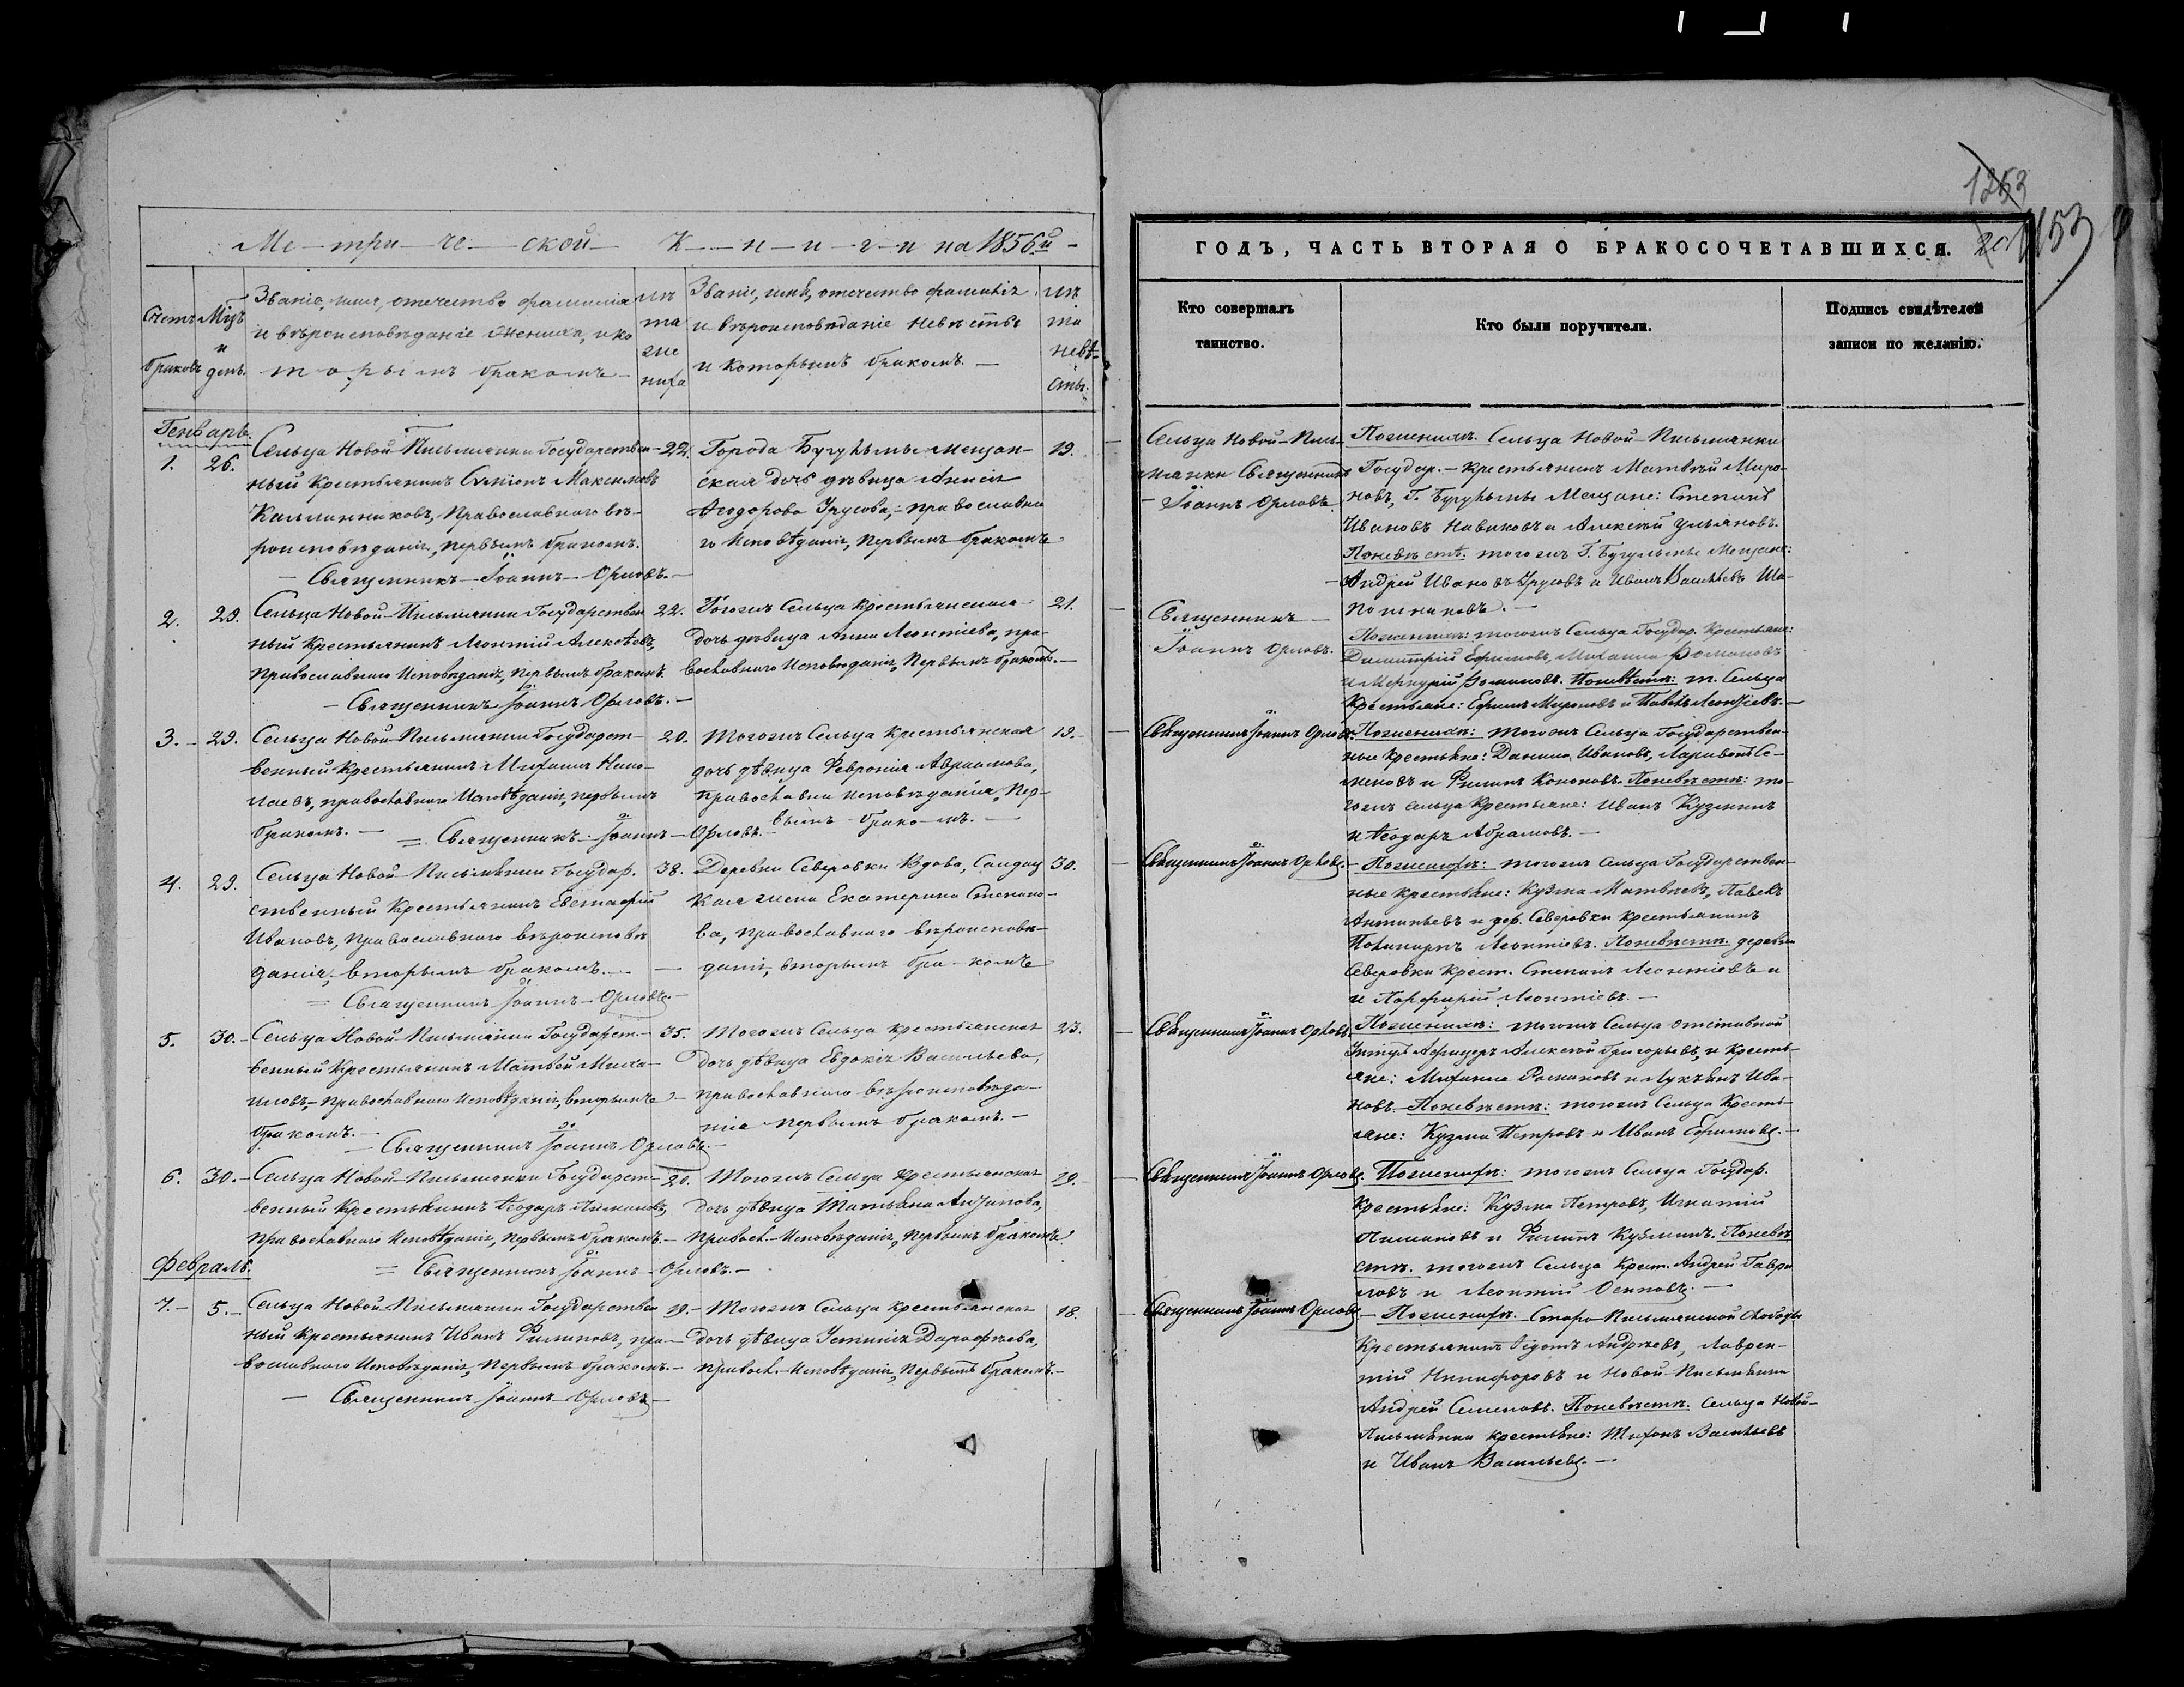 Ме-три-че-ской К-н-и-г-и на 1856й
Счетъ браковъ
Мцъ и день.
Званіе, имя, отечество фамилія
и вѣроисповѣданіе жениха, и ко
торымъ бракомъ
лѣта жениха
Званіе, имя, отечество фамилія
и вѣроисповѣданіе невѣсты
и которымъ бракомъ.
лѣта невѣсты.
Генварь.
1. 26.
Сельца Новой Письмянки Государствен-
ный Крестьянинъ Максимовъ
Православнаго вѣ-
роисповѣданія, первымъ бракомъ.
Священникъ Іоаннъ Орловъ.
22.
Города Бугульмы мещан-
ская дочь дѣвица
Ѳеодорова Урусова, православна
го исповѣданія, первымъ бракомъ
19.
2. 29.
Сельца Новой Письмянки Государствен
ный Крестьянинъ Леонтій Алексѣевъ,
православнаго исповѣданія, первымъ бракомъ.
Священникъ Іоаннъ Орловъ.
22.
Тогожъ Сельца крестьянская
дочь дѣвица Анна Леонтіева, пра-
вославнаго исповѣданія, первымъ бракомъ.
21.
3. 29.
Сельца Новой Письмянки Государст-
венный крестьянинъ Михаилъ
православнаго исповѣданія, первымъ
бракомъ. Священникъ Іоаннъ Орловъ.
20.
Тогожъ Сельца крестьянская
дочь дѣвица Февронія Авраамова,
православна исповѣданія, пер-
вымъ бракомъ.
19.
4. 29.
Сельца Новой Письмянки Государ.
ственный Крестьянинъ Евстафій
Ивановъ, православнаго вѣроисповѣ
данія, вторымъ бракомъ.
Священникъ Іоаннъ Орловъ.
38.
Деревни Северовки вдова, Солдат
кая жена Екатерина Степано-
ва, православнаго вѣроисповѣ-
данія, вторымъ бракомъ
30.
5. 30.
Сельца Новой Письмянки Государст-
венный Крестьянинъ Матвей Миха-
иловъ, православнаго исповѣданія, вторымъ
бракомъ. Священникъ Іоаннъ Орловъ.
35.
Тогожъ Сельца крестьянская
дочь дѣвица Евдокія Васильева,
православнаго вѣроисповѣда-
нія первымъ бракомъ.
23.
6. 30.
Сельца Новой Письмянки Государст-
венный Крестьянинъ Ѳеодоръ
православнаго исповѣданія, первымъ бракомъ.
Священникъ Іоаннъ Орловъ.
20.
Тогожъ Сельца крестьянская
дочь дѣвица Татьяна
правосл. исповѣданія, первымъ бракомъ.
Февраль.
7. 5.
Сельца Новой Письмянки Государствен
ный крестьянинъ Иванъ Филиповъ, пра-
вославнаго исповѣданія, первымъ бракомъ.
Священникъ Іоаннъ Орловъ
19.
Тогожъ Сельца крестьянская
дочь дѣвица Устинія Дорофѣева,
правосл. исповѣданія, первымъ бракомъ.
18.
1253
1153
ГОДЪ, ЧАСТЬ ВТОРАЯ О БРАКОСОЧЕТАВШИХСЯ.
Кто совершалъ
таинство.
Кто были поручители.
Подпись свидѣтелей
записи по желанію.
Сельца Новой Пись-
мянки Священникъ
Іоаннъ Орловъ
Пожениху. Сельца Новой Письмянки
Государ. крестьянинъ Матвѣй Миро-
новъ, Г. Бугульмы Мещане: Степанъ
Ивановъ Новиковъ и Алексѣй Ульяновъ.
Поневѣстѣ: тогожъ Г. Бугульмы Мещане:
Андрей Ивановъ Урусовъ и Иванъ Васильевъ Ша-
пошниковъ.
Священникъ
Іоаннъ Орловъ.
Пожениху: тогожъ Сельца Государ. Крестьяне:
Димитрій Ефимовъ, Михаилъ Романовъ
и Меркурій Романовъ. Поневѣстѣ: т. Сельца
Крестьяне: Ефимъ Мироновъ и Павелъ Леонтіевъ.
Священникъ Іоаннъ Орловъ.
Пожениху: тогожъ Сельца Государствен-
ные крестьяне: Данила Ивановъ, Ларивонъ Се-
меновъ и Филипъ Кононовъ. Поневѣстѣ: то-
гожъ сельца Крестьяне: Иванъ Кузминъ
и Ѳеодоръ Абрамовъ.
Священникъ Іоаннъ Орловъ.
Пожениху: тогожъ Сельца Государствен-
ные крестьяне: Кузма Матвѣевъ, Павелъ
Антипьевъ и дер. Северовки крестьянинъ
Поликарпъ Леонтіевъ. Поневѣстѣ. деревни
Северовки Крест. Степанъ Леонтіевъ и
и Порфирій Леонтіевъ.
Священникъ Іоаннъ Орловъ.
Пожениху: тогожъ Сельца отставной
Унтеръ Афицеръ Алексѣй Григорьевъ, и Кресть-
яне: Михаила Романовъ и Лукьянъ Ива-
новъ. Поневѣстѣ: тогожъ Сельца Кресть-
яне: Кузма Петровъ и Иванъ Ефимовъ.
Священникъ Іоаннъ Орловъ.
Пожениху: тогожъ Сельца Государ.
крестьяне: Кузма Петровъ, Игнатій
и Филипъ Кузминъ. Поневѣ
стѣ. тогожъ Сельца Крест. Андрей Гаври
ловъ и Леонтій Осиповъ.
Священникъ Іоаннъ Орловъ.
Пожениху. Старо Письмянской слободы
Крестьянинъ Ѳедотъ Андреевъ, Лаврен-
тій Никифоровъ и Новой Письмянки
Андрей Семеновъ. Поневѣстѣ. Сельца Новой-
Письмянки крестьяне: Тихонъ Васильевъ
и Иванъ Васильевъ.